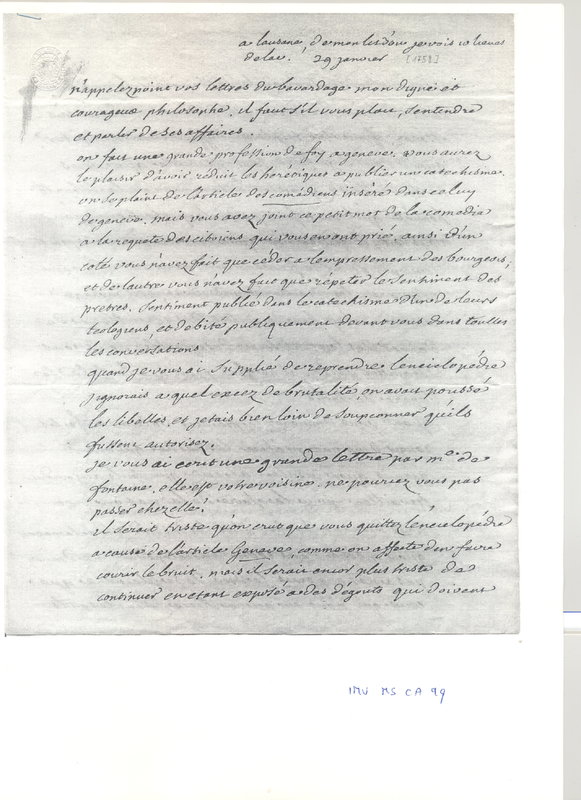 a lausane, de mon lit d'ou je vois 10 lieues
de lac. 29 janvier [1758]
n'appelez point vos lettres du bavardage mon digne et
courageux philosophe. il faut s'il vous plait, s'entendre
et parler de ses affaires.
on fait une grande profession de foy a geneve. vous aurez
le plaisir d'avoir reduit les heretiques a publier un catechisme.
on se plaint de l'article des comédiens inséré dans celuy
de geneve. mais vous avez joint ce petit mot de la comedie
a la requete des citoiens qui vous en ont prié, ainsi d'un
coté vous n'avez fait que céder a l'empressement des bourgeois,
et de l'autre vous n'avez fait que répéter le sentiment des
pretres, sentiment publié dans le catechisme d'un de leurs
teologiens, et débité publiquement devant vous dans touttes
les conversations
quand je vous ai supplié de reprendre l'enciclopédie
j'ignorais a quel excez de brutalité on avait poussé
les libelles, et j'etais bien loin de soupçonner qu'ils
fussent autorisez.
je vous ai écrit une grande lettre par me de
fontaine, elle est votre voisine, ne pouriez vous pas
passer chez elle?
il serait triste qu'on crut que vous quittez l'enciclopédie
a cause de l'article Geneve, comme on affecte d'en faire
courir le bruit. mais il serait encor plus triste de
continuer en etant exposé a des dégouts qui doivent
IMV MS CA 99